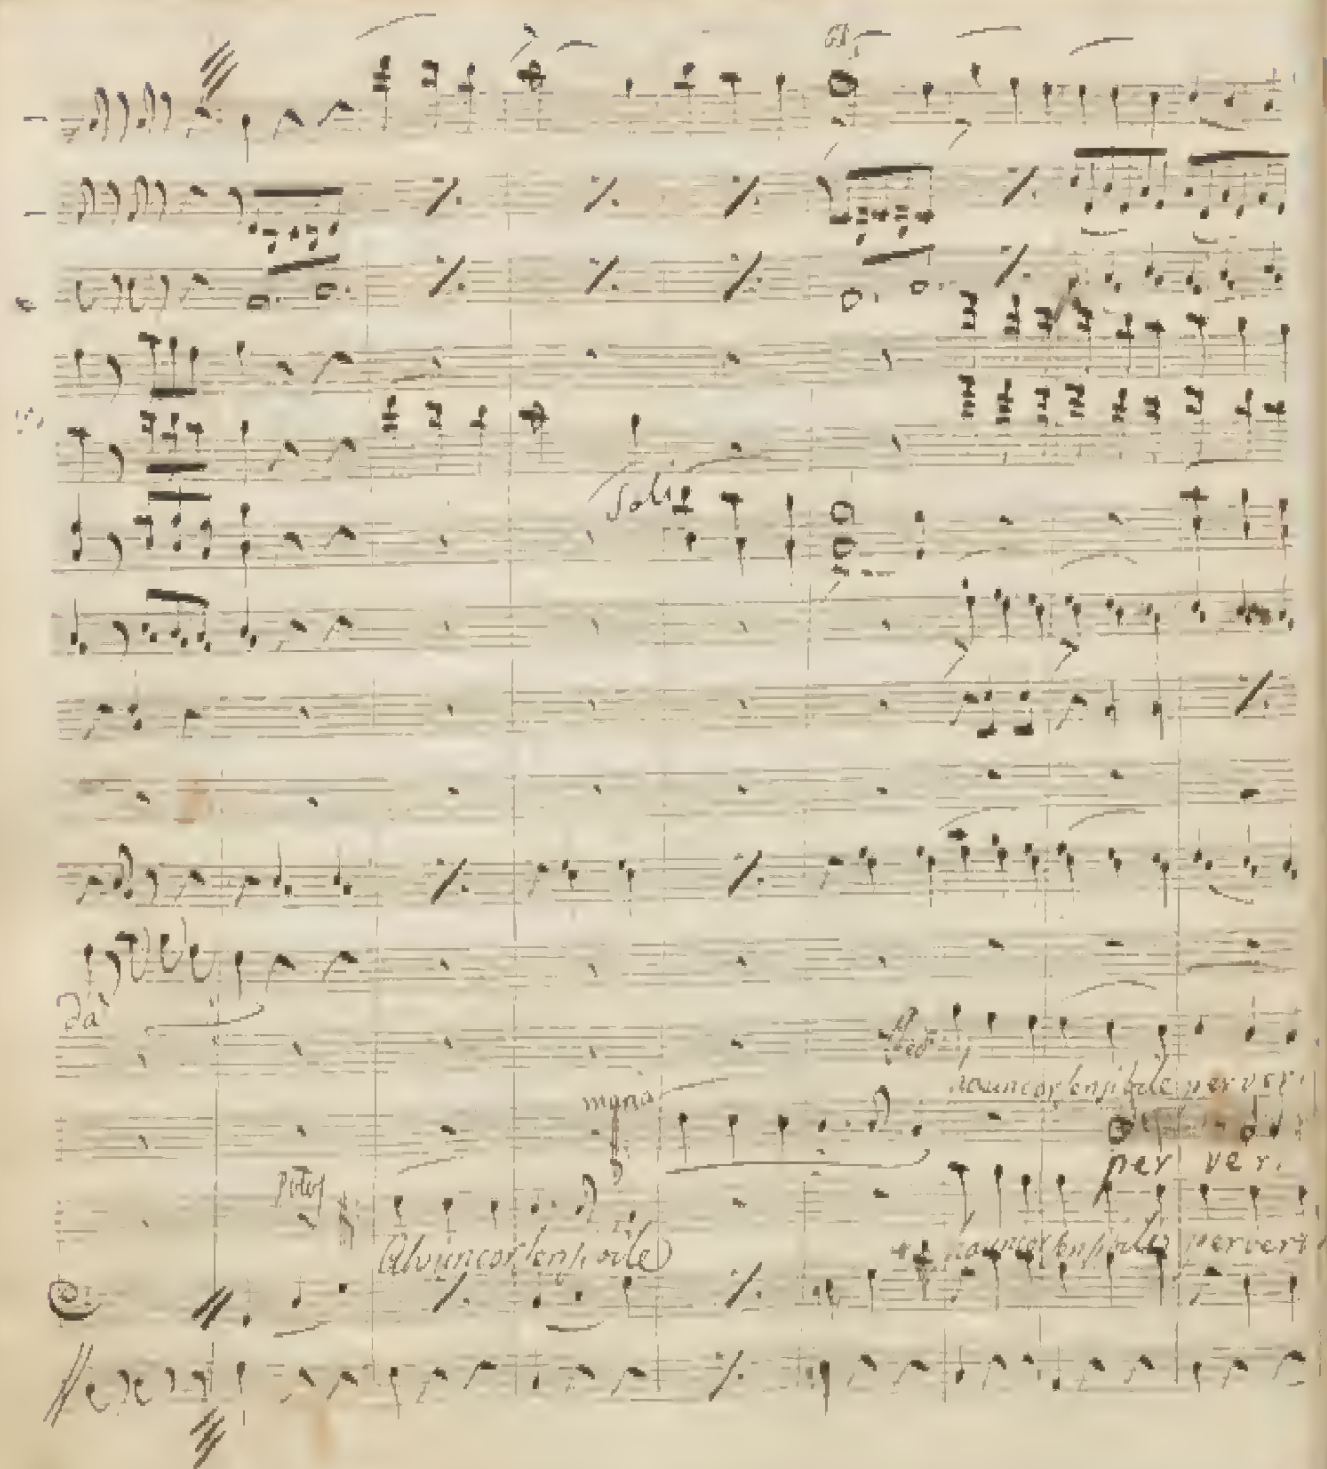 Soli
da
ha un cor sensibile per ver
mana
per ver.
Ah un cor sensibile
ha un cor sensibile per ver